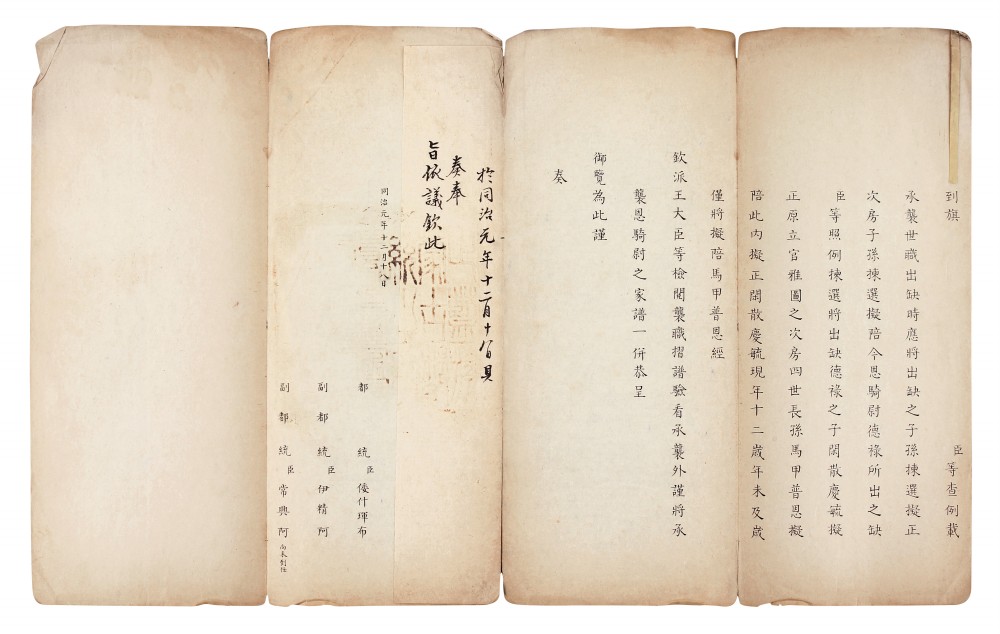 到旗 臣等查例載
承襲世職出缺時應將出缺之子孫揀選擬正
次房子孫揀選擬陪今恩騎尉德祿所出之缺
臣等照例揀選將出缺德祿之子閑散慶毓擬
正原立官雅圖之次房四世長孫馬甲普恩擬
陪此內擬正閑散慶毓現年十二歲年未及歲
僅將擬陪馬甲普恩經
欽派王大臣等檢閱襲職摺譜驗看承襲外謹將承
襲恩騎尉之家譜一併恭呈
御覽為此謹
奏
於同治元年十二月十八日具
奏奉
旨依議欽此
同治元年十二月十八日
都統臣倭什琿布
副都統臣伊精阿
副都統臣常興阿 尚未到任